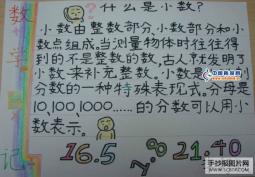 什么是小数?
小数由整数部分、小数部分和小
数点组成。当测量物体时往往得
到的不是整数的数,古人就发明了
小数来补充整数。小数是
分数的一种特殊表现式。分母是
10,100,1000……的分数可以用小
数表示。
16.5
21.40
数学
记
手抄报图片网